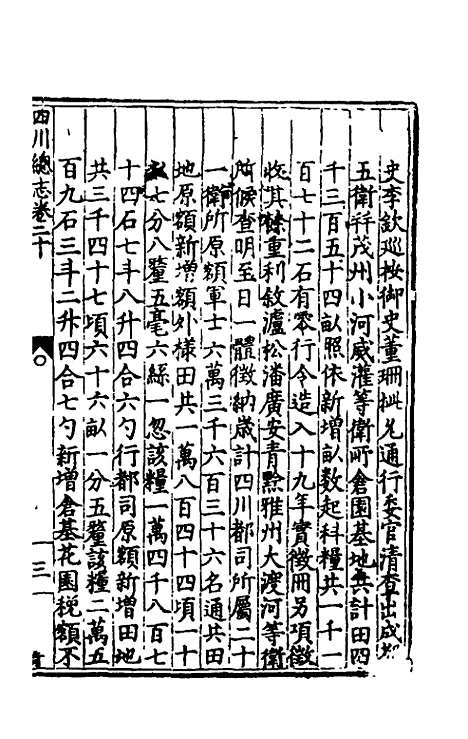 史李欽巡按御史董珊批允通行委官清查出成都
五衛幷茂州小河威灌等衛所倉園基地共計田四
千三百五十四畝照依新增畝数起科糧共一千一
百七十二石有零行令造入十九年實徵冊另項徵
收其餘重利敘瀘松潘廣安青黔雅州大渡河等衛
所候查明至日一體徵納歲計四川都司所屬二十
一衛所原額軍士六萬三千六百三十六名通共田
地原額新增額外様田共一萬八百四十四項一十
七分八釐五毫六絲一忽該糧一萬四千八百七
十四石七斗八升四合六勺行都司原額新增田地
共三千四十七項六十六畝一分五釐該糧二萬五
百九石三斗二升四合七勺新增倉基花園稅額不
四川總志卷二十
三